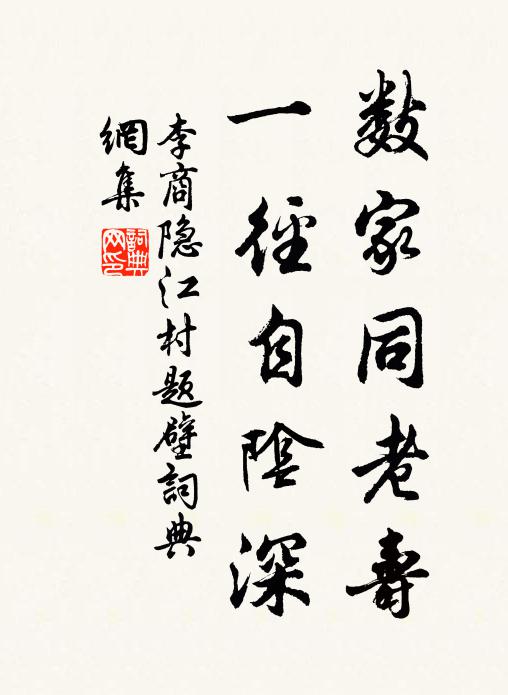 数家同老壽
一徑自陰深
李商隐江村题壁詞典
網集
詞典
网印